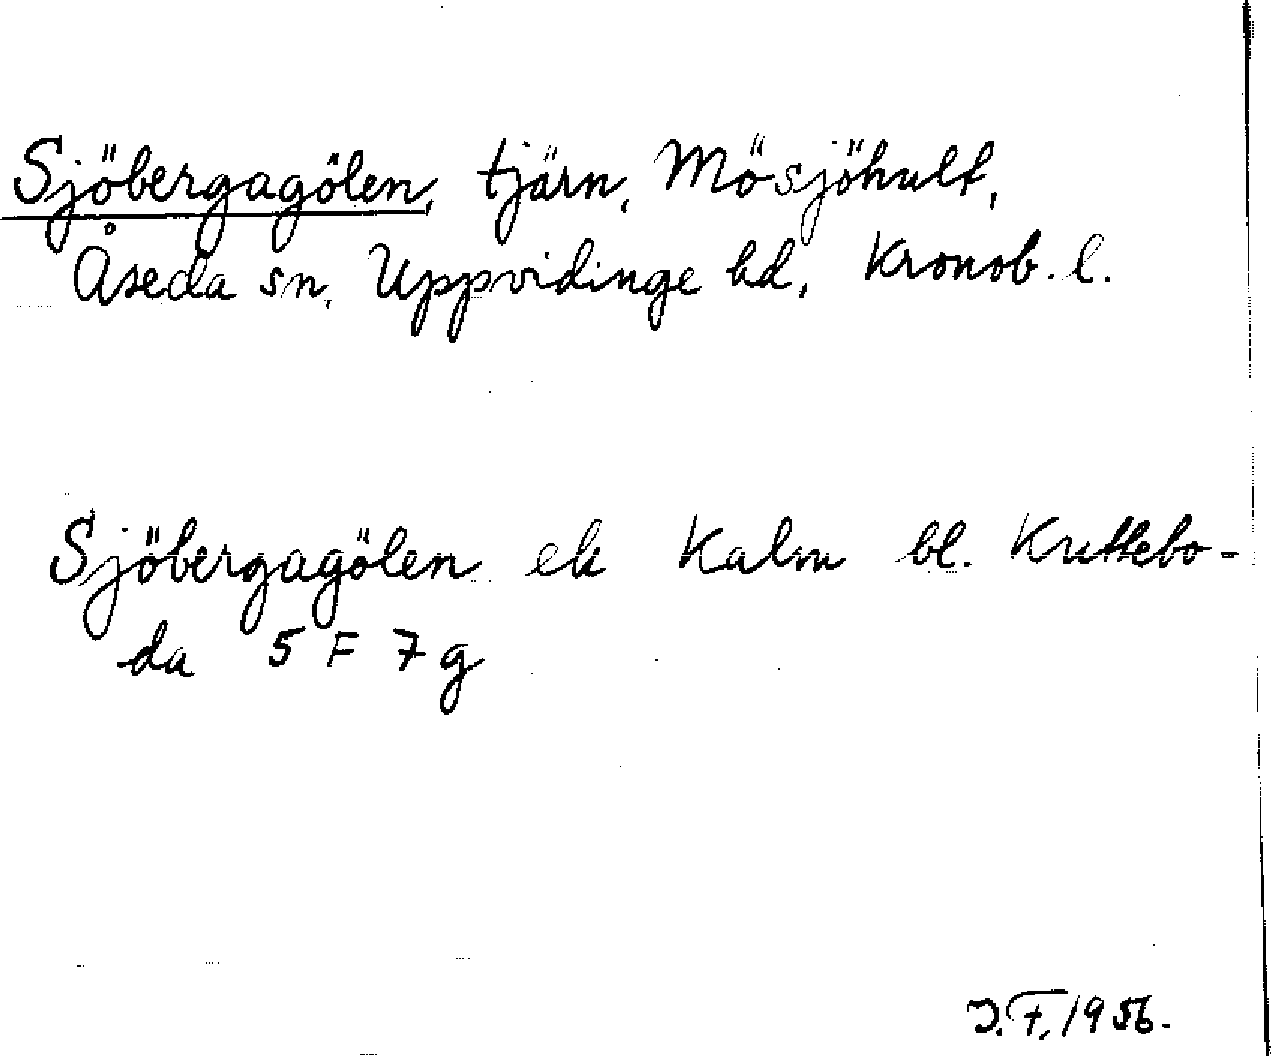 Sjöbergagölen, tjärn, Mösjöhult,
Åseda sn, Uppvidinge hd, Kronob. l.
Sjöbergagölen ek Kalm bl. Kruttebo-
da 5 F 7 g
J.F. 1956.